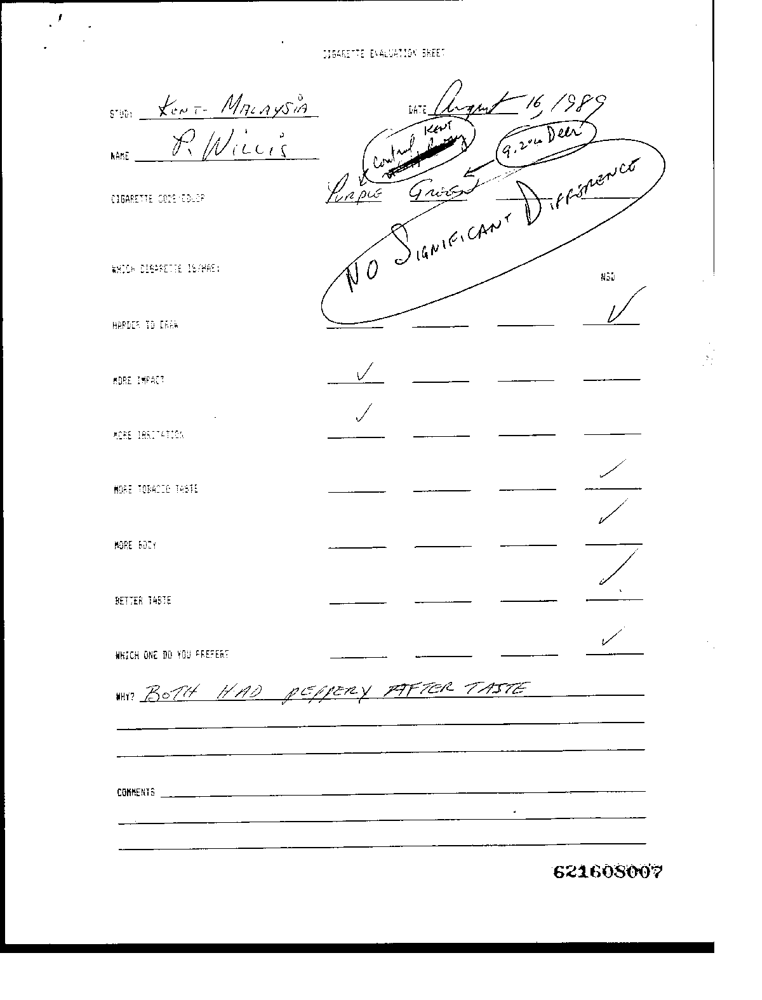 CIGARETTE EVALUATION SHEET
STUDY KENT- MALAYSIA DATE August 16, 1989
NAME P. WILLIS
Control KENT
Deer
CIGARETTE CODE/COLOR PURPLE GREEN
NO SIGNIFICANT DIFFERENCE
WHICH CIGARETTE IS/HAS: NSD
HARDER TO DRAW ✓
MORE IMPACT ✓
MORE IRRITATION ✓
MORE TOBACCO TASTE ✓
MORE BODY ✓
BETTER TASTE ✓
WHICH ONE DO YOU PREFER? ✓
WHY? BOTH HAD PEPPERY AFTER TASTE
COMMENTS
621608007